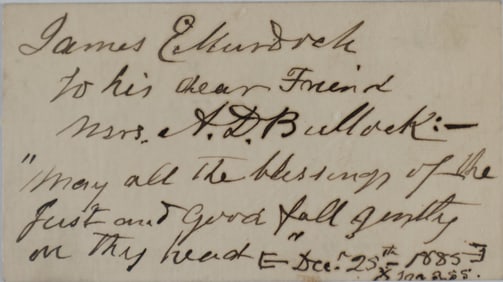 James E. Murdoch
to his dear Friend
Mrs. A. D. Bullock:—
"May all the blessings of the
Just and Good fall gently
on thy head" Dec. 25th 1885